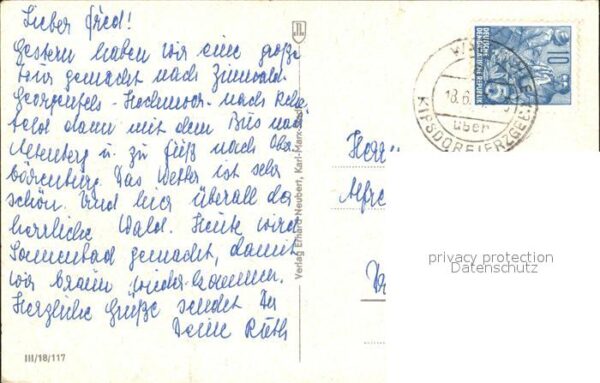 Lieber Fred!
Gestern haben wir eine große
Tour gemacht nach Zinnwald-
Georgenfels-Hochmoor-nach Rehe-
feld dann mit dem Bus nach
Altenberg u. zu Fuß nach Ober
bärenburg. Das Wetter ist sehr
schön. Und hier überall der
herrliche Wald. Heute wird
Sonnenbad gemacht, damit
wir braun wieder kommen.
Herzliche Grüße sendet Dir
Deine Ruth
III/18/117
Verlag Erhard Neubert, Karl-Marx-
DEUTSCHE
DEMOKRATISCHE REPUBLIK
10
18.6.
über
KIPSDORF (ERZGEB.)
Herrn
Alfre
privacy protection
Datenschutz